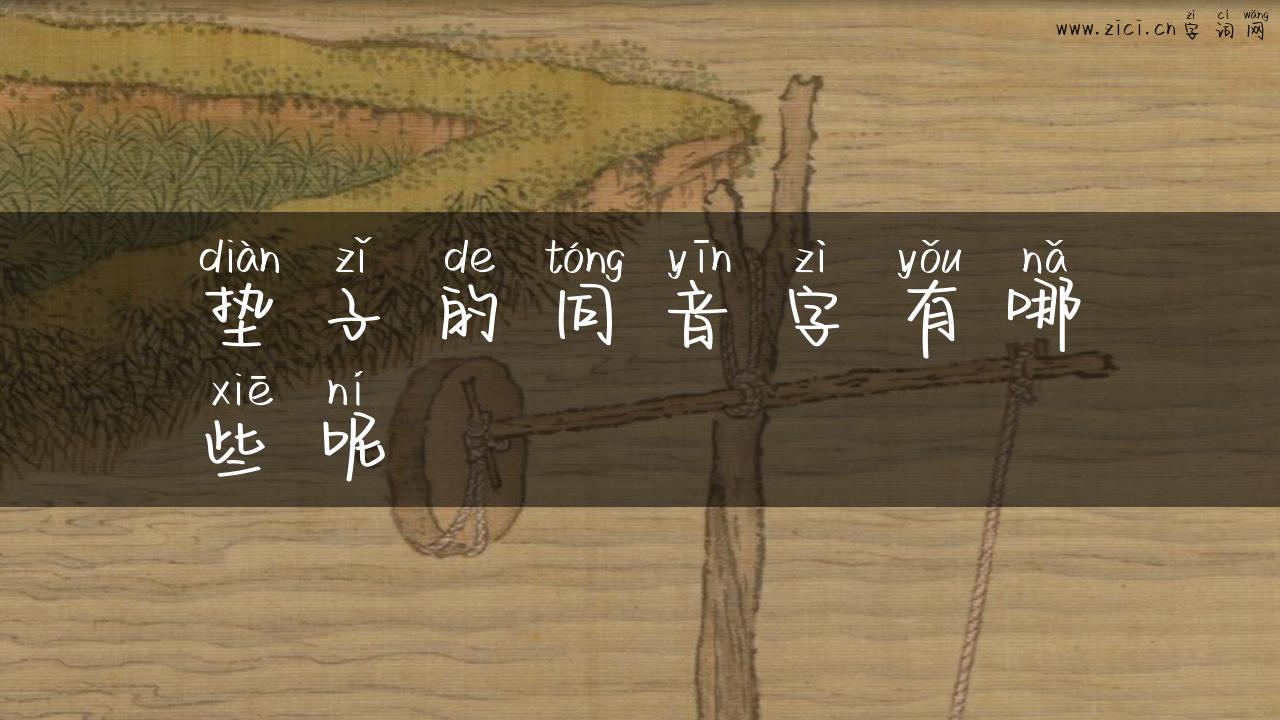 zì cí wǎng
www.zici.cn 字 词 网
diàn zǐ de tóng yīn zì yǒu nǎ
垫 子 的 同 音 字 有 哪
xiē ní
些 呢